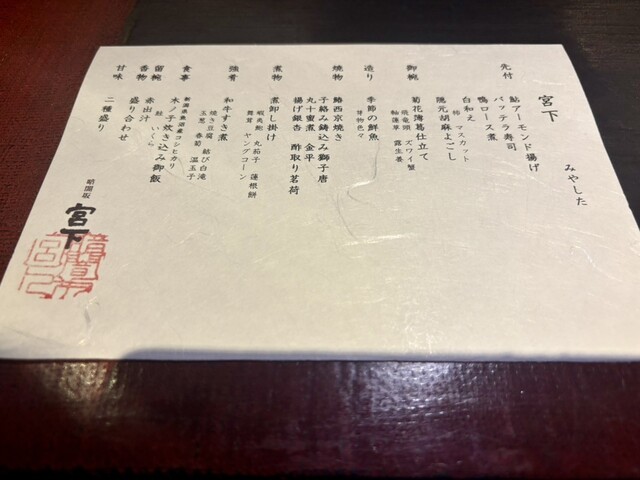 宮下
みやした
先付
鮎アーモンド揚げ
バッテラ寿司
鴨ロース煮
白和え
柿 マスカット
隠元胡麻よごし
御椀
菊花薄葛仕立て
飛竜頭 ズワイ蟹
軸蓮草 露生姜
造り
季節の鮮魚
芽物色々
焼物
鰆西京焼き
子絡み鋳込み獅子唐
丸十蜜煮 金平
揚げ銀杏 酢取り茗荷
煮物
煮卸し掛け
丸茄子 蓮根餅
舞茸 ヤングコーン
強肴
和牛すき煮
焼き豆腐 結び白滝
玉葱 春菊 温玉子
食事
新潟県魚沼産コシヒカリ
木ノ子炊き込み御飯
鮭 いくら
留椀
赤出汁
香物
盛り合わせ
甘味
二種盛り
暗闇坂
宮下